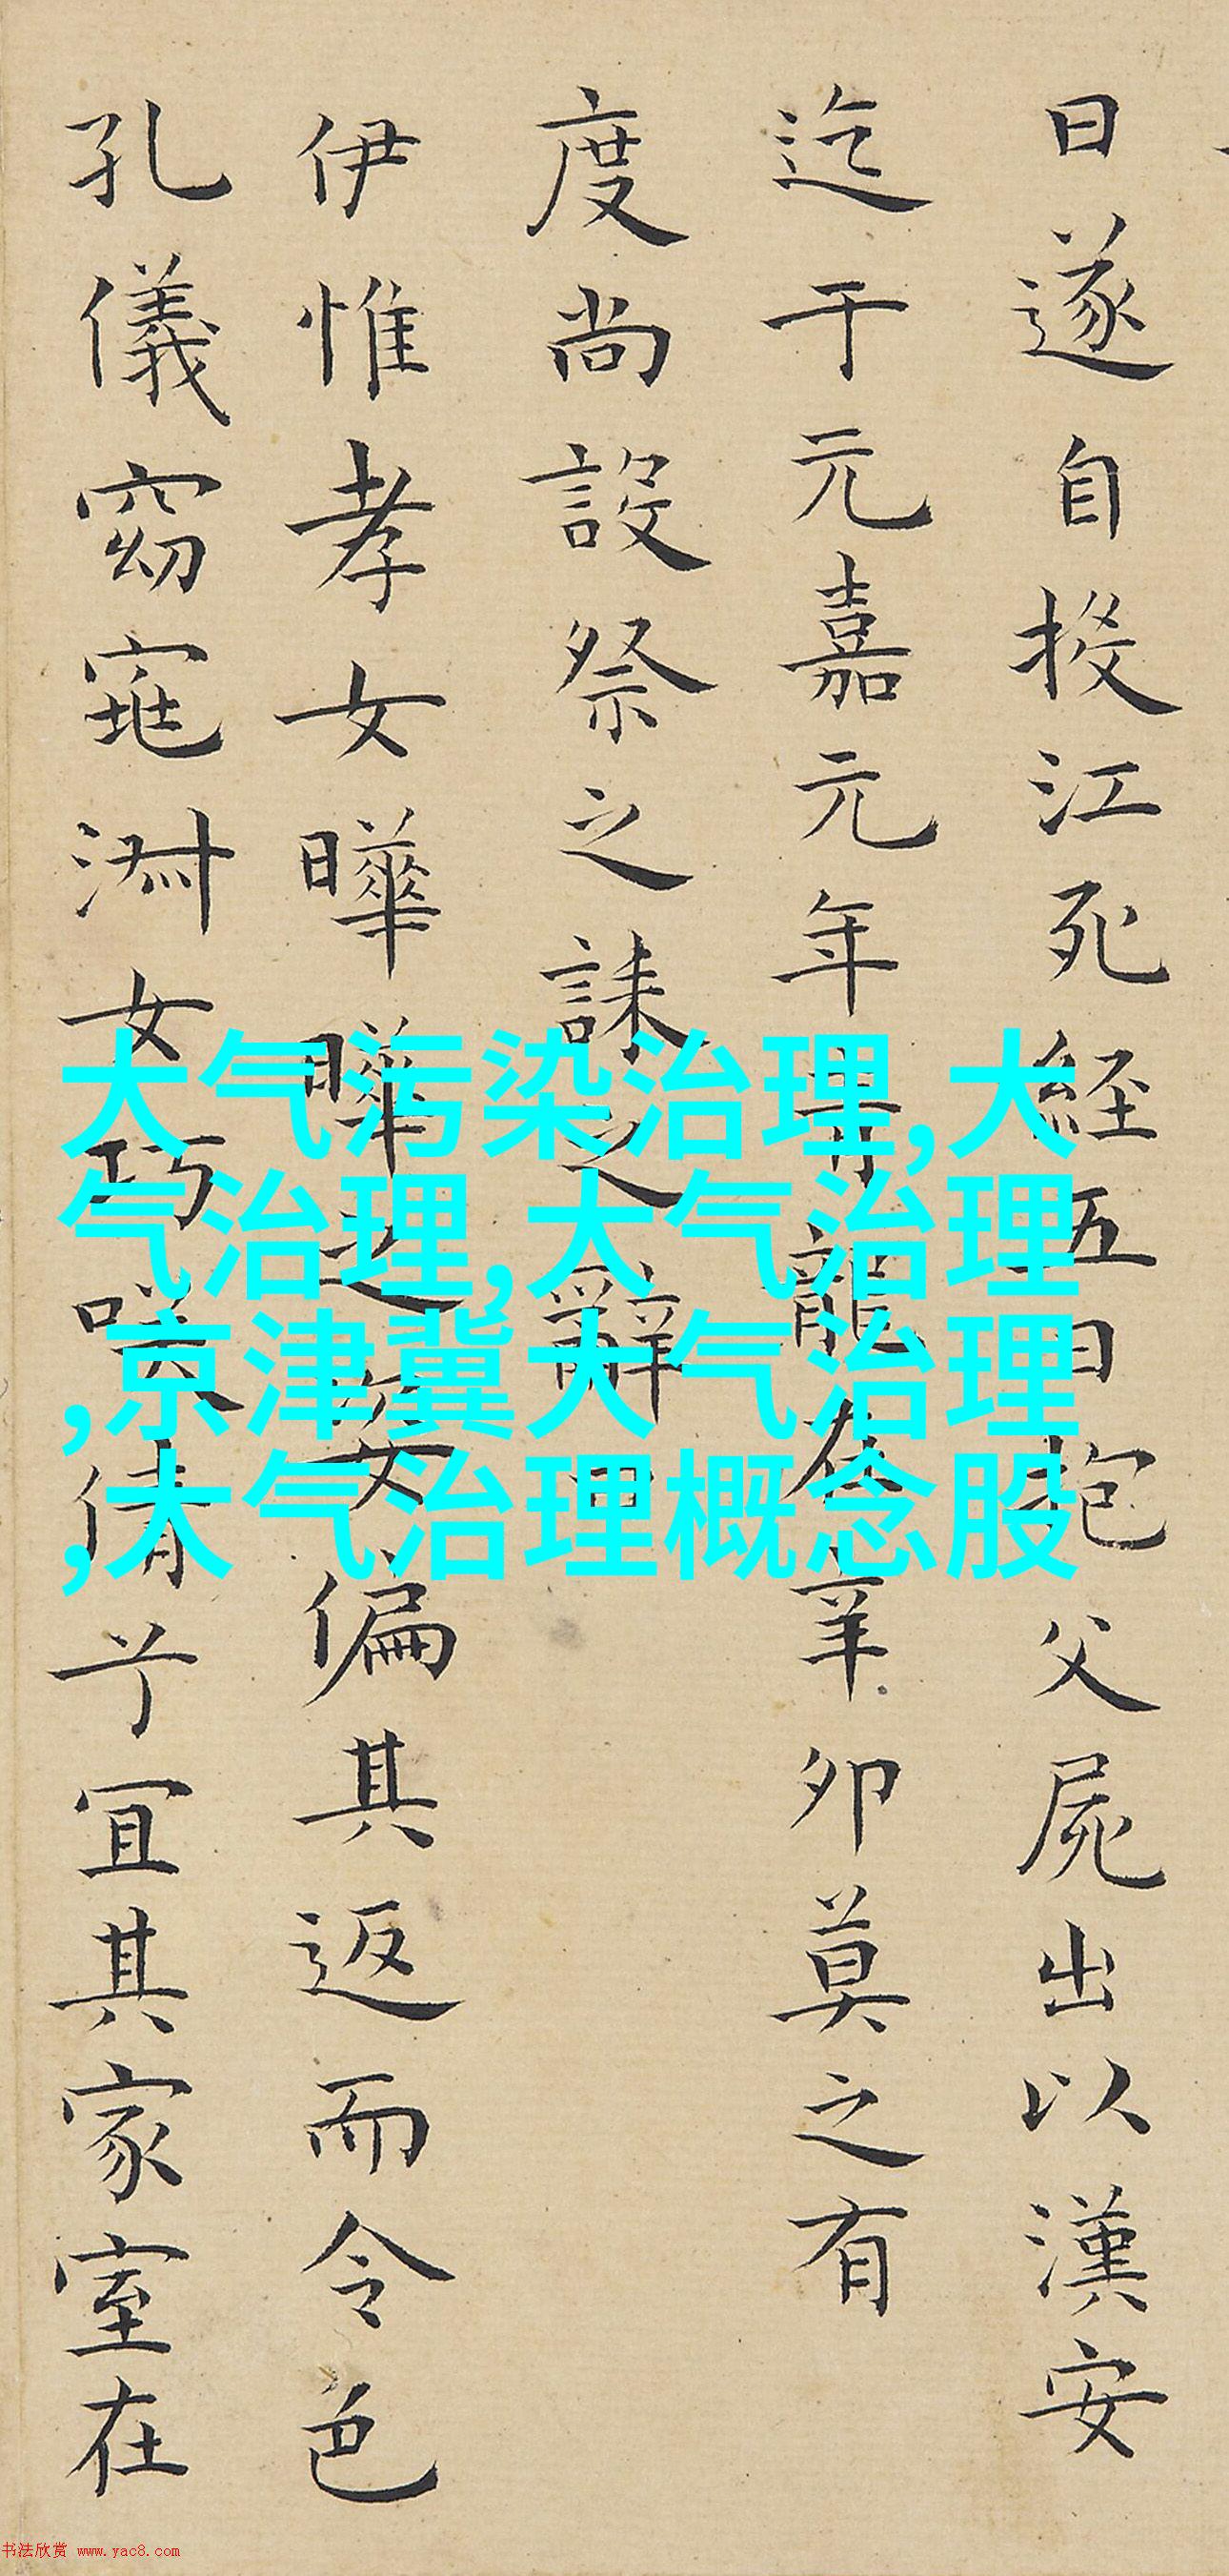 日遂自投江死経五日抱父屍出以漢安
迄于元嘉元年青龍在辛卯莫之有
度尚設祭之誄之辭曰
伊惟孝女曄曄之姿偏其返而令色
孔儀窈窕淑女巧咲倩兮宜其家室在
大气污染治理,大
气治理,大气治理
,京津冀大气治理
,大气治理概念股
书法欣赏 www.yac8.com